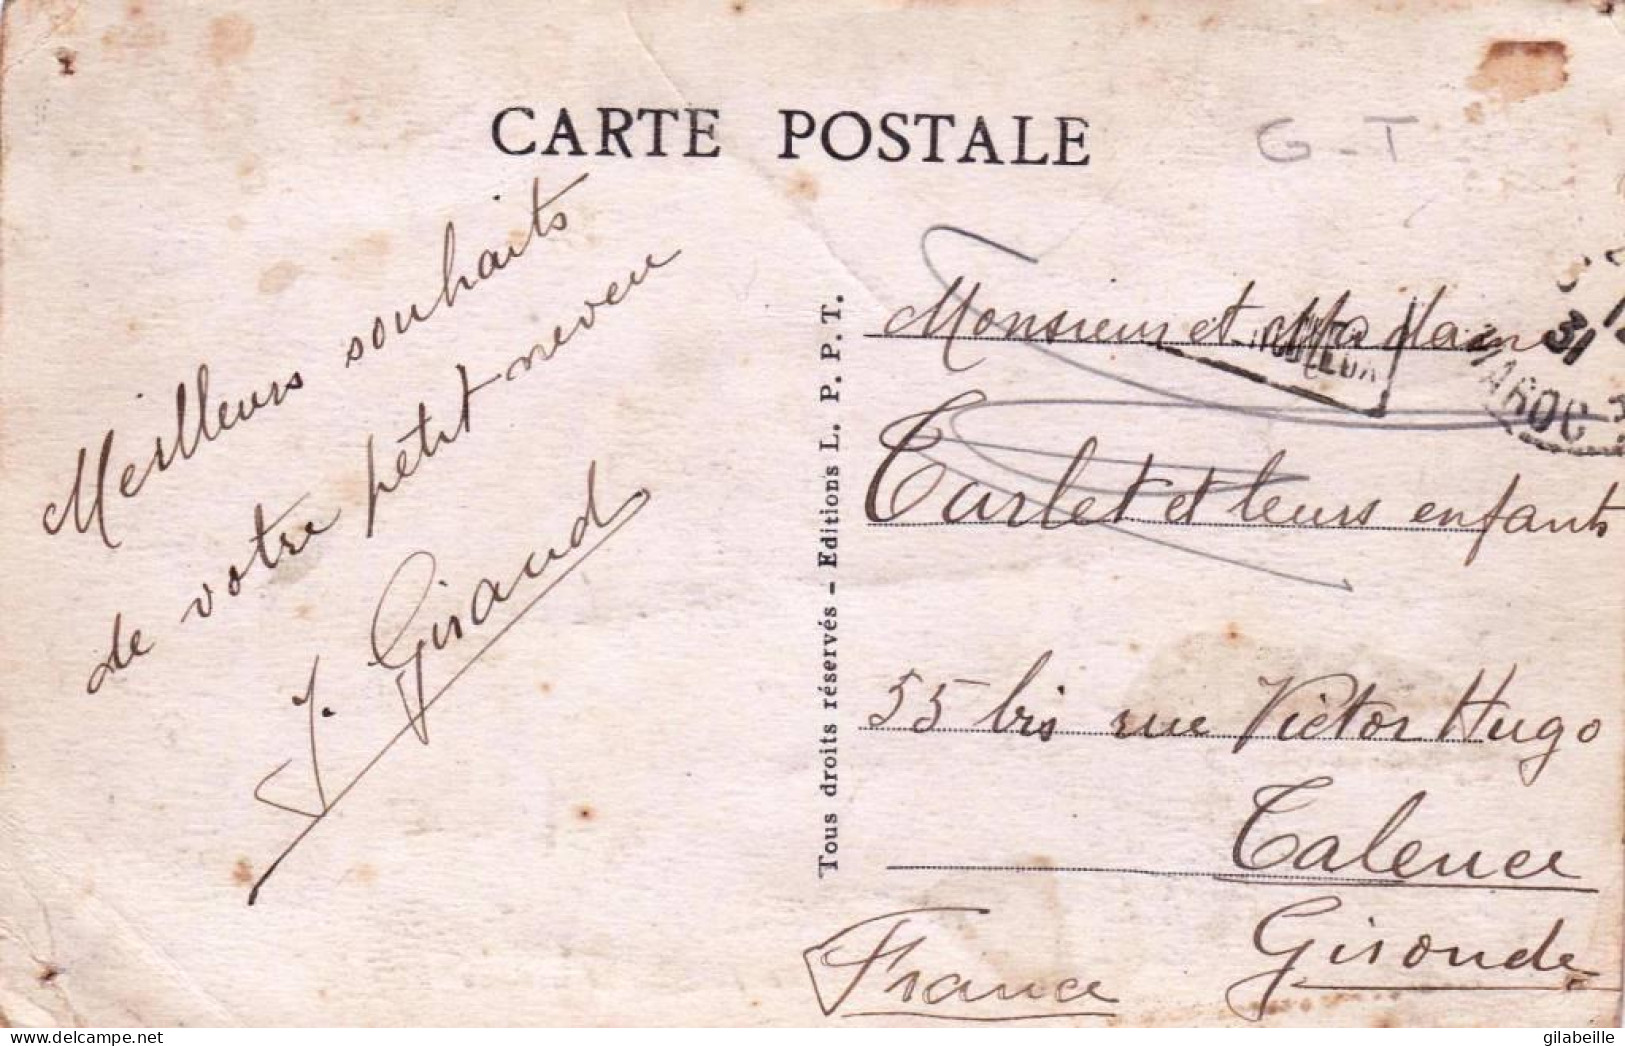 CARTE POSTALE
G-T
Meilleurs souhaits
de votre petit neveu
J. Giraud
Tous droits réservés – Editions L. P. P. T.
Monsieur et Madame
31
MAROC
Tarlet et leurs enfants
55 bis rue Victor Hugo
Talence
Gironde
France
gilabeille